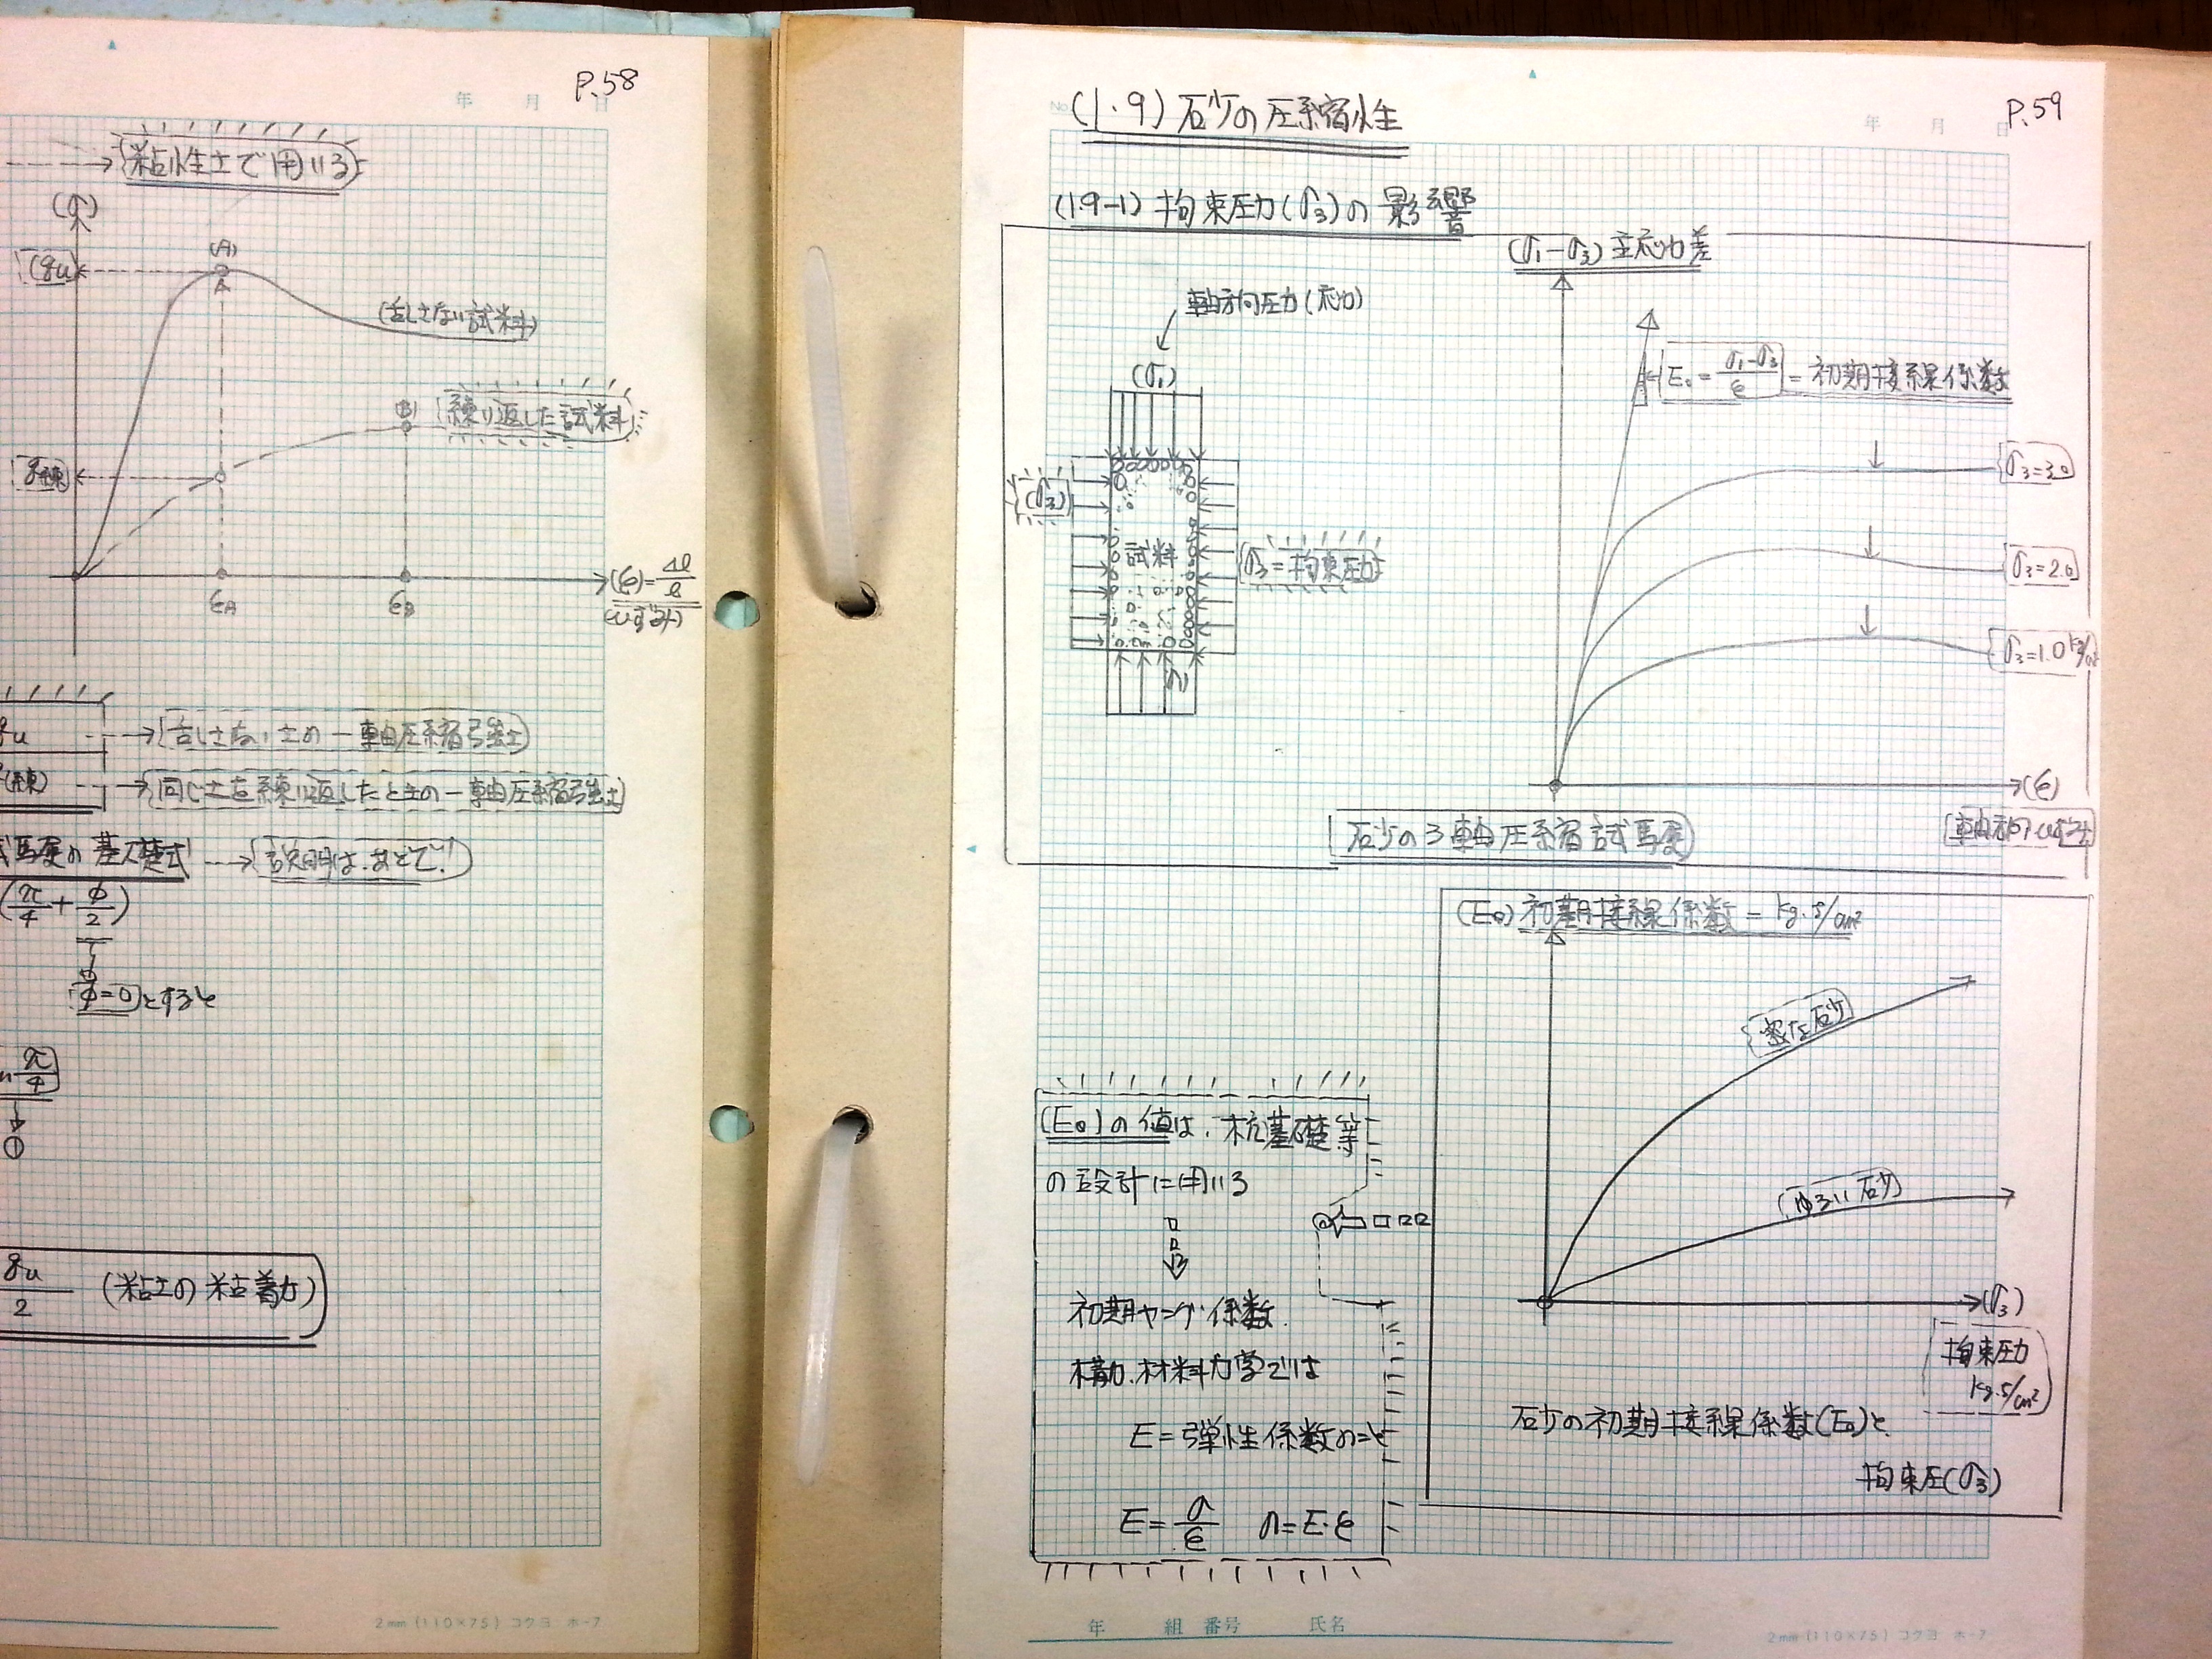 P.58
年 月 日
粘性土で用いる
(σ)
(qu)
(A)
(乱さない試料)
練り返した試料
(B)
q練
εA
εB
(ε)=Δl/l
(ひずみ)
qu → 乱さない土の一軸圧縮強さ
(練) → 同じ土を練り返したときの一軸圧縮強さ
試験の基礎式 → 説明は、あとで!
(π/4+φ/2)
φ=0とすると
π/4
①
qu/2 (粘土の粘着力)
2mm (110×75) コクヨ ホ-7
No.
P.59
年 月 日
(1.9) 砂の圧縮性
(1.9-1) 拘束圧力(σ3)の影響
軸方向圧力(応力)
(σ1)
(σ3)
試料
σ3=拘束圧力
(σ1-σ3) 主応力差
E0=σ1-σ3/ε=初期接線係数
σ3=3.0
σ3=2.0
σ3=1.0kg/cm²
(ε)
軸方向ひずみ
砂の3軸圧縮試験
(E0) 初期接線係数 = kg.f/cm²
密な砂
ゆるい砂
(σ3)
拘束圧力
kg.f/cm²
砂の初期接線係数(E0)と
拘束圧(σ3)
(E0)の値は、杭基礎等
の設計に用いる
初期ヤング係数
構力.材料力学では
E=弾性係数のこと
E=σ/ε σ=E・ε
年 組 番号 氏名
2mm (110×75) コクヨ ホ-7